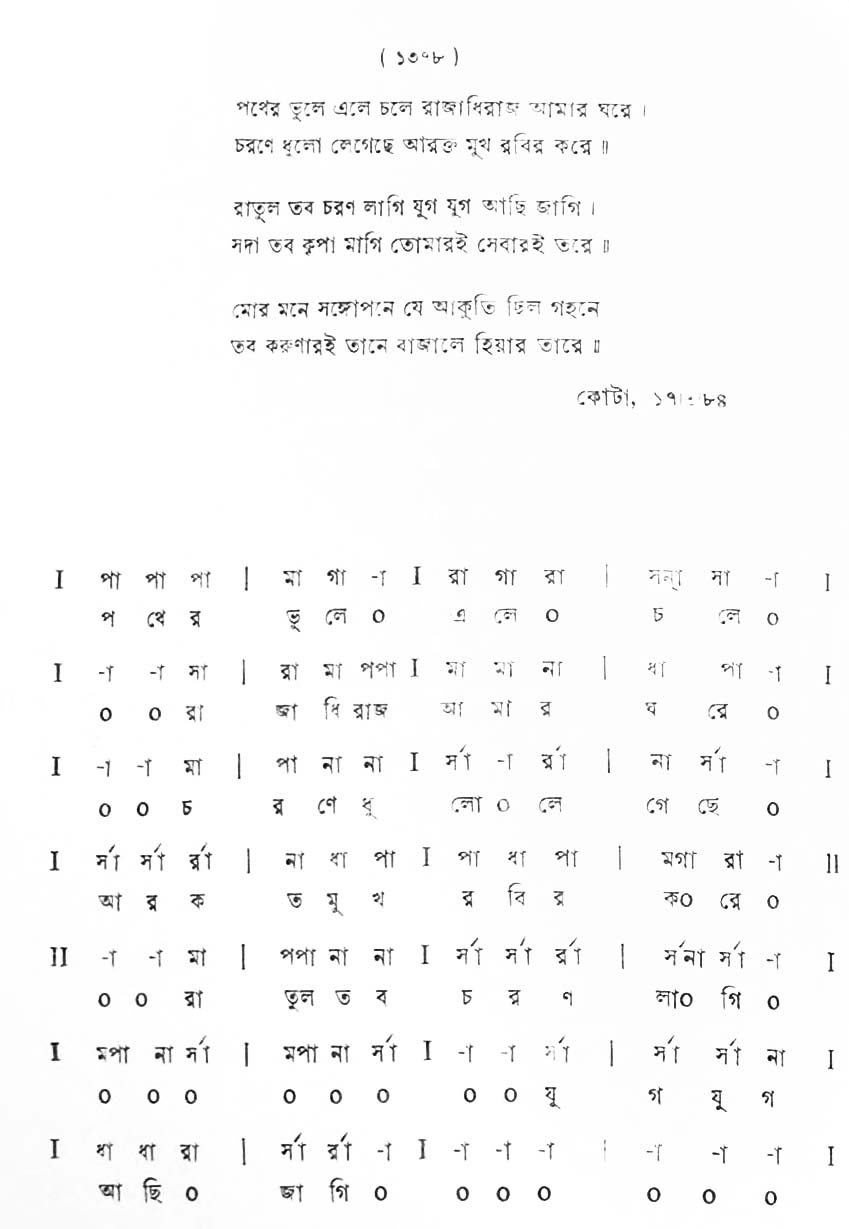 ( ১৩৭৮ )
পথের ভুলে এলে চলে রাজাধিরাজ আমার ঘরে ।
চরণে ধুলো লেগেছে আরক্ত মুখ রবির করে ॥
রাতুল তব চরণ লাগি যুগ যুগ আছি জাগি ।
সদা তব কৃপা মাগি তোমারই সেবারই তরে ॥
মোর মনে সঙ্গোপনে যে আকুতি ছিল গহনে
তব করুণারই তানে বাজালে হিয়ার তারে ॥
কোটা,
I পা পা পা | মা গা -া I রা গা রা | সন্া সা -া I
প থে র ভু লে ০ এ লে ০ চ লে ০
I -া -া সা | রা মা পপা I মা মা না | ধা পা -া I
০ ০ রা জা ধি রাজ আ মা র ঘ রে ০
I -া -া মা | পা না না I র্সা -া র্রা | না র্সা -া I
০ ০ চ র ণে ধু লো ০ লে গে ছে ০
I র্সা র্সা র্রা | না ধা পা I পা ধা পা | মগা রা -া II
আ র ক ত মু খ র বি র ক০ রে ০
II -া -া মা | পপা না না I র্সা র্সা র্রা | র্সনা র্সা -া I
০ ০ রা তুল ত ব চ র ণ লা০ গি ০
I মপা না র্সা | মপা না র্সা I -া -া র্সা | র্সা র্সা না I
০ ০ ০ ০ ০ ০ ০ ০ যু গ যু গ
I ধা ধা রা | র্সা র্রা -া I -া -া -া | -া -া -া I
আ ছি ০ জা গি ০ ০ ০ ০ ০ ০ ০